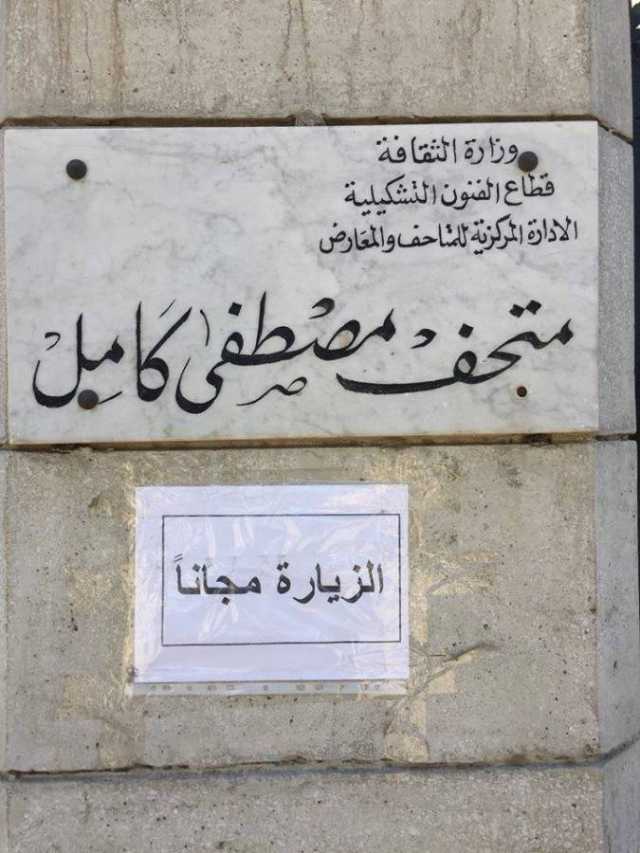 وزارة الثقافة
قطاع الفنون التشكيلية
الادارة المركزية للمتاحف والمعارض
متحف مصطفى كامل
الزيارة مجاناً